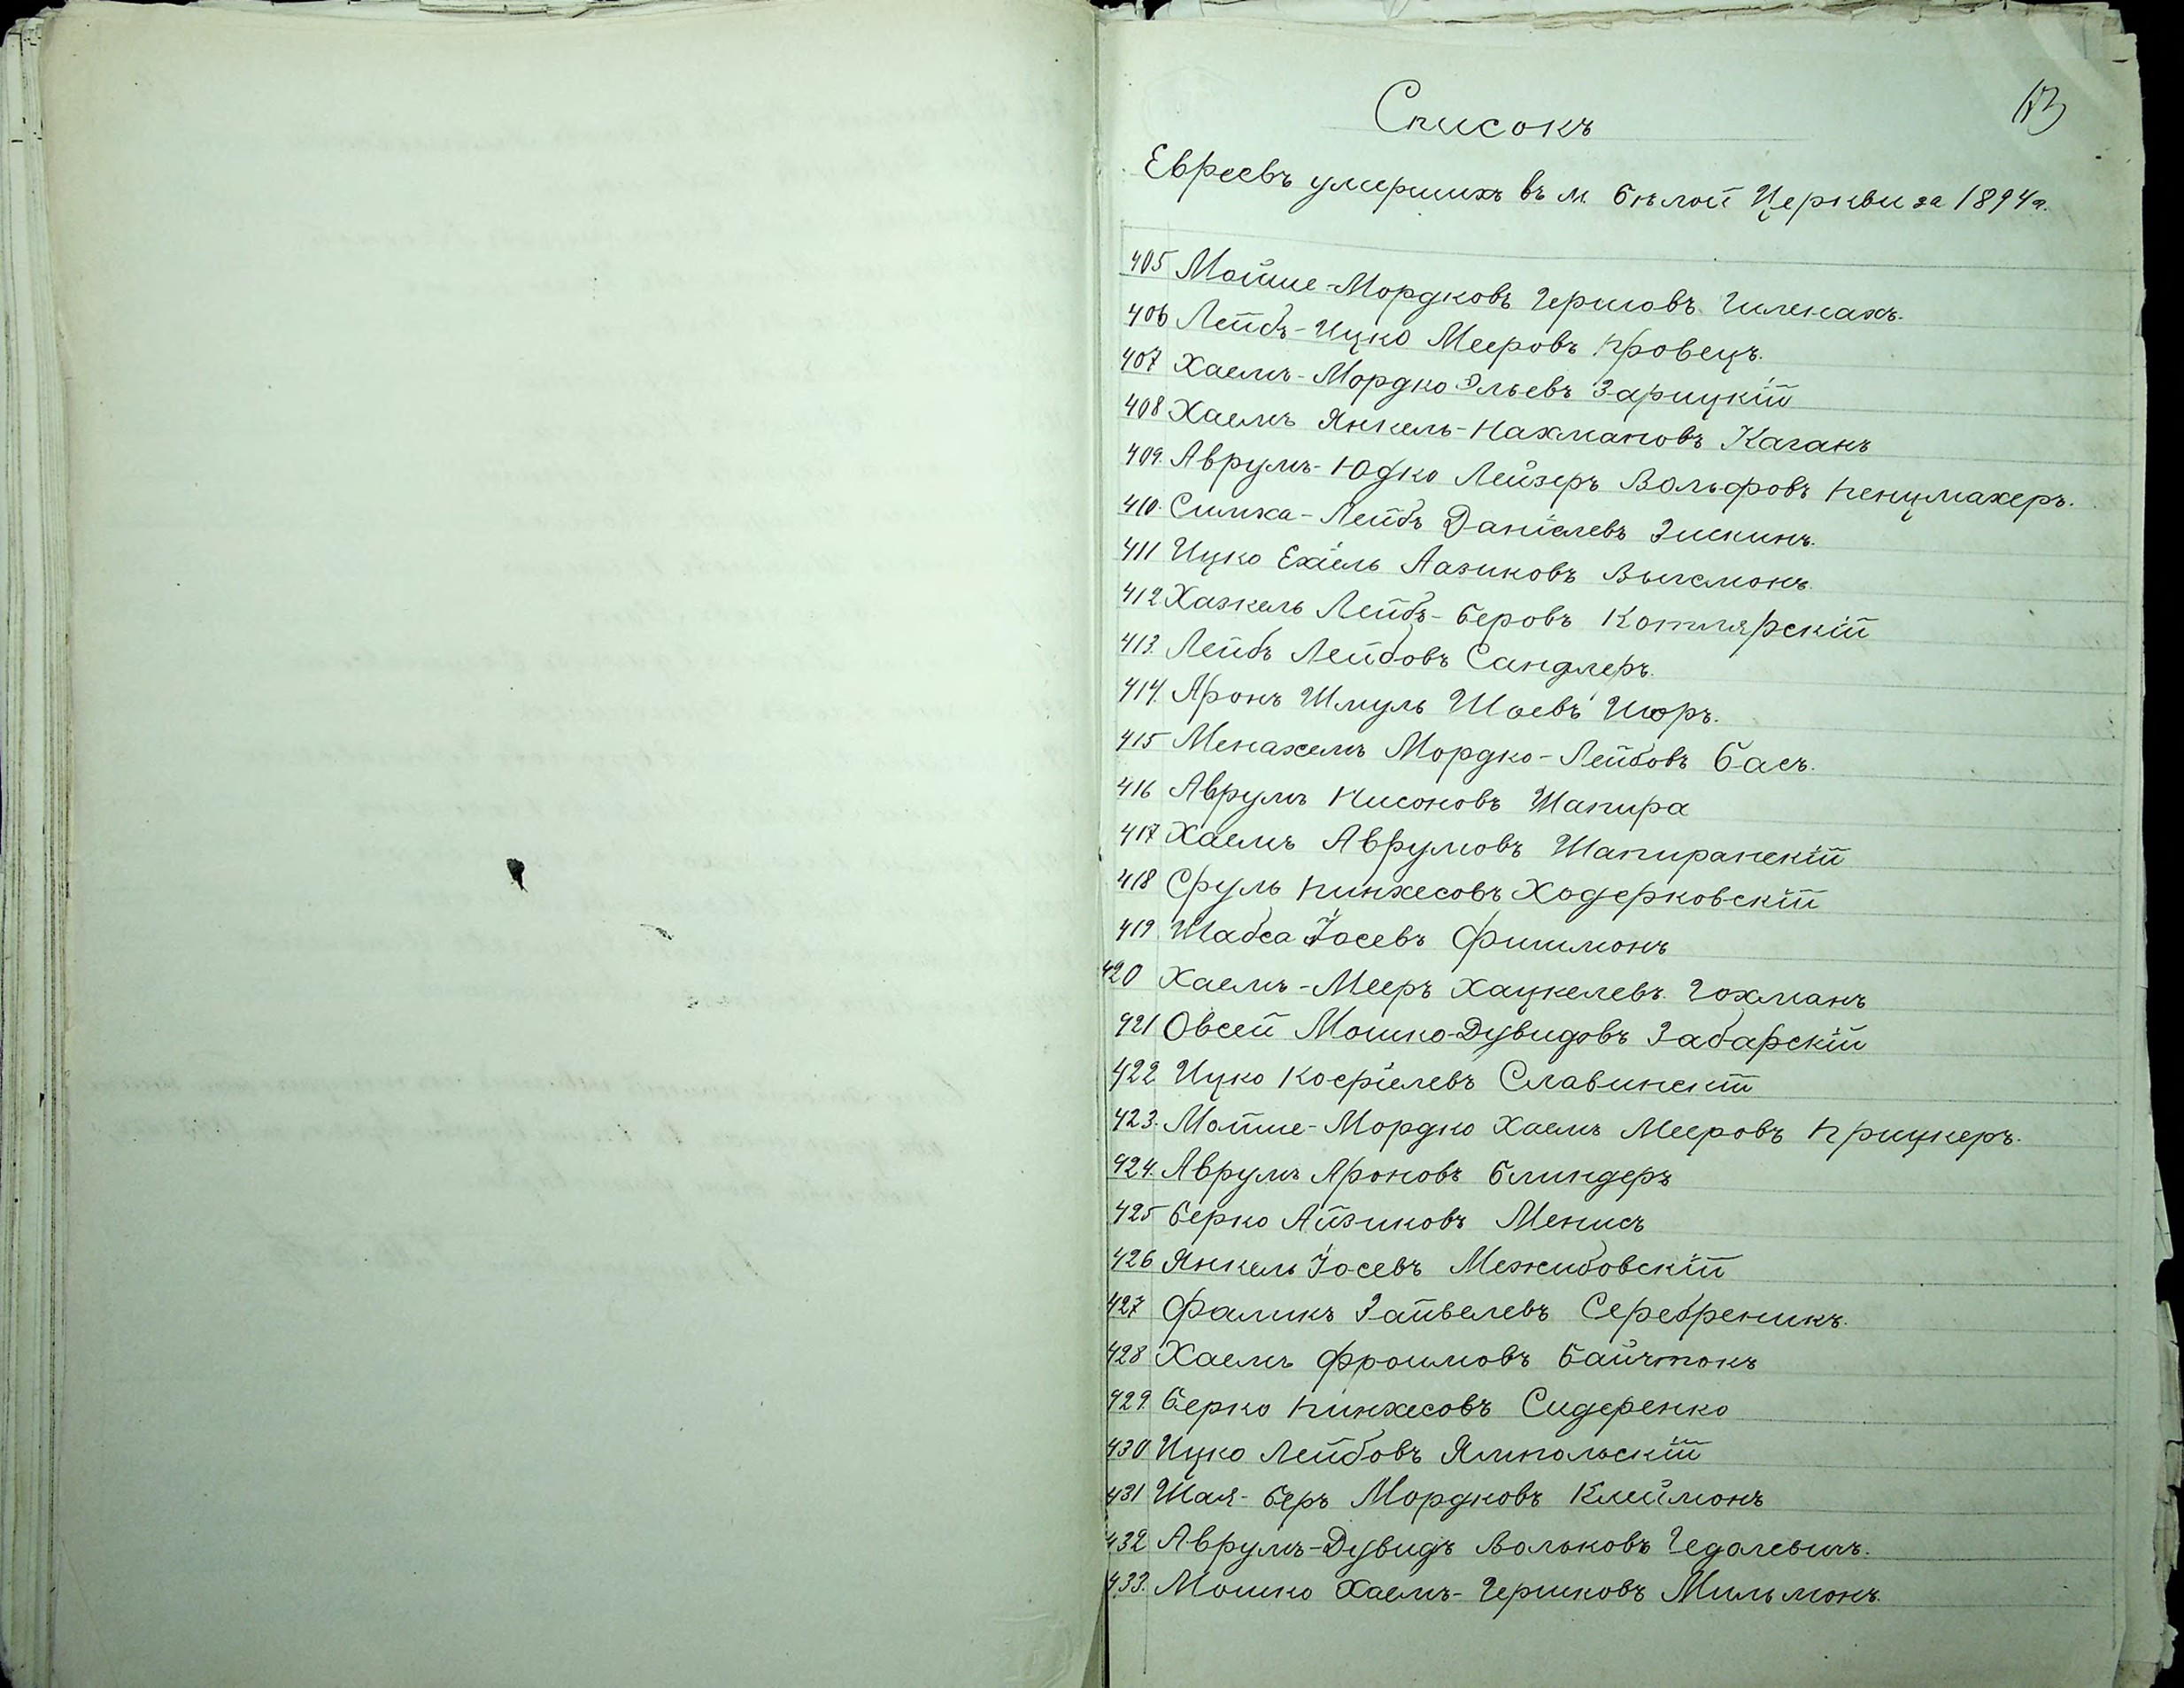 Списокъ
Евреевъ умершихъ въ м. Бѣлой Церкви за 1894 г.
405 Мойше-Мордковъ Гершовъ
406 Лейбъ-Ицко Мееровъ Кровецъ.
407 Хаемъ-Мордко Эльевъ Зарицкій
408 Хаемъ Янкель-Нахмановъ Каганъ
409. Аврумъ-Юдко Лейзеръ Вольфовъ Пенцмахеръ.
410. Симха-Лейбъ Даніелевъ Зискинъ.
411 Ицко Ехіель Аазиковъ
412 Хазкель Лейбъ-Беровъ Котлярскій
413. Лейбъ Лейбовъ Сандлеръ.
414. Аронъ Шмуль Шоевъ
415 Менахемъ Мордко-Лейбовъ Басъ.
416 Аврумъ Нисоновъ Шапира
417 Хаемъ Аврумовъ Шапиранскій
418 Сруль Пинхесовъ Ходерковскій
419 Шабса Іосевъ Фишмонъ
420 Хаемъ-Мееръ Хацкелевъ Гохманъ
421 Овсей Мошко-Дувидовъ Забарскій
422 Ицко Косріелевъ Славинскій
423. Мойше-Мордко Хаемъ Мееровъ Прицкеръ.
424. Аврумъ Ароновъ Блиндеръ
425 Берко Айзиковъ Менисъ
426 Янкель Іосевъ Межибовскій
427 Фаликъ Зайвелевъ Серебреникъ.
428 Хаемъ Фроимовъ Байчтокъ
429. Берко Пинхесовъ Сидеренко
430 Ицко Лейбовъ Ямпольскій
431 Шая-Беръ Мордковъ Клеймонъ
432 Аврумъ-Дувидъ Вольковъ Гедалевичъ.
433. Мошко Хаемъ-Гершковъ Мильмонъ.